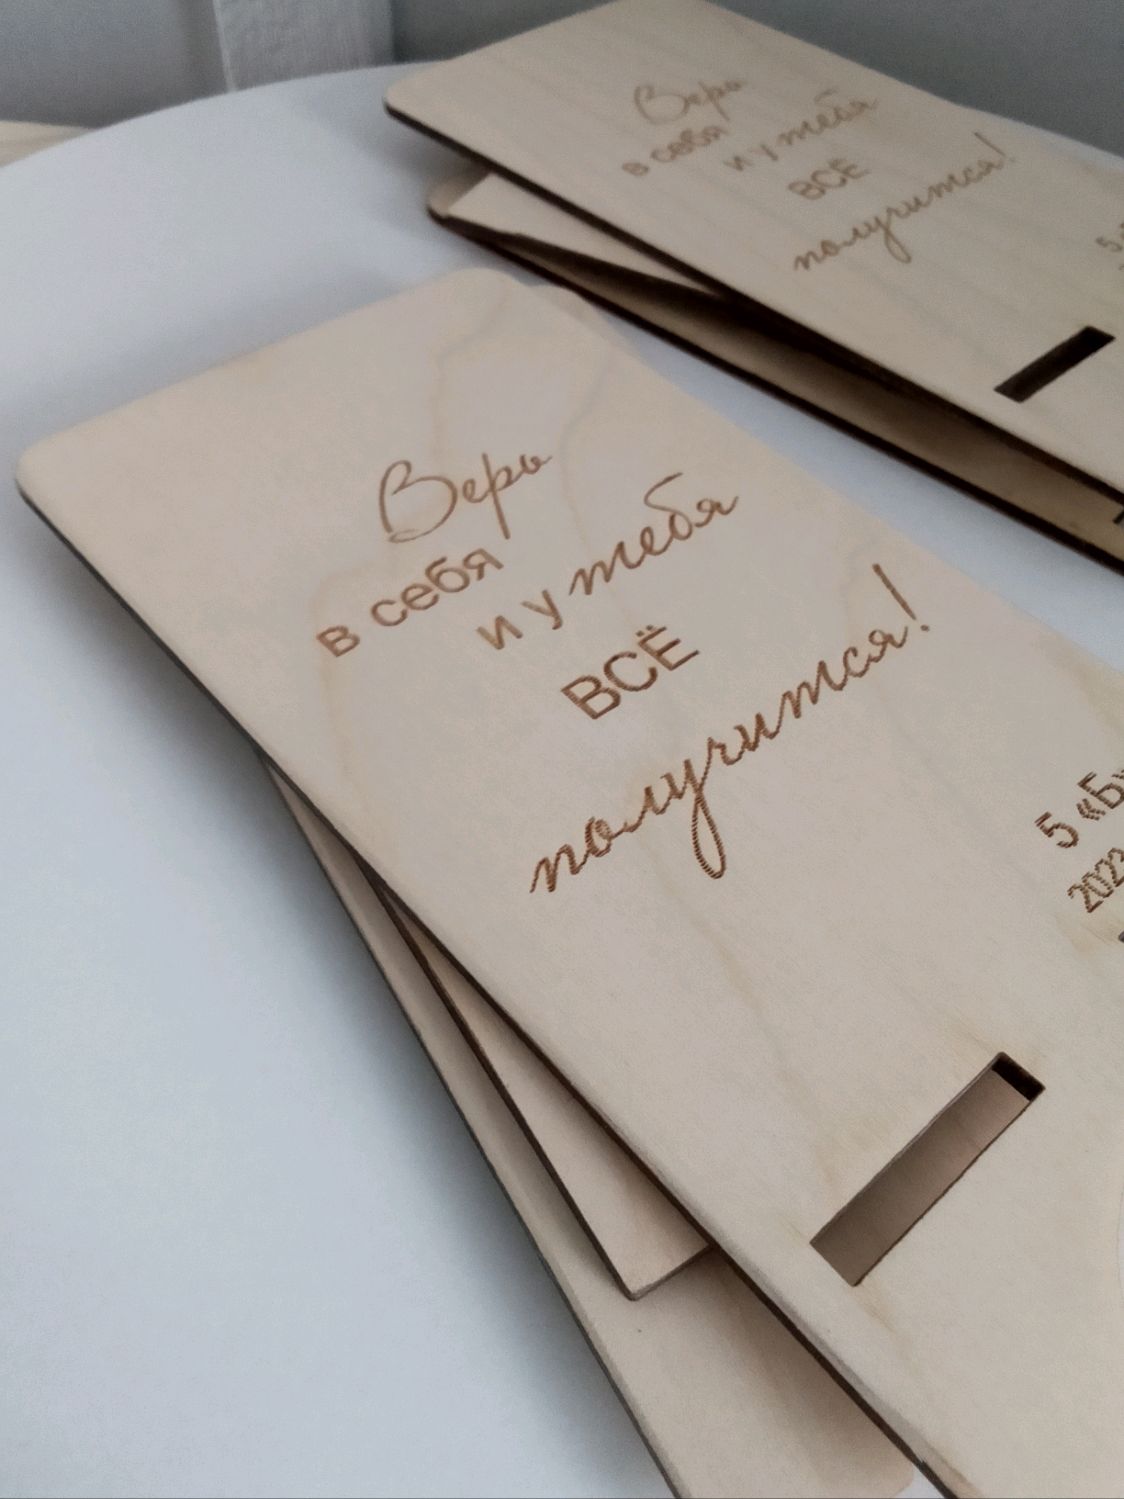 Верь
в себя
и у тебя
ВСЁ
получится!
5 «Б»
2023
Верь
в себя
и у тебя
ВСЁ
получится!
5